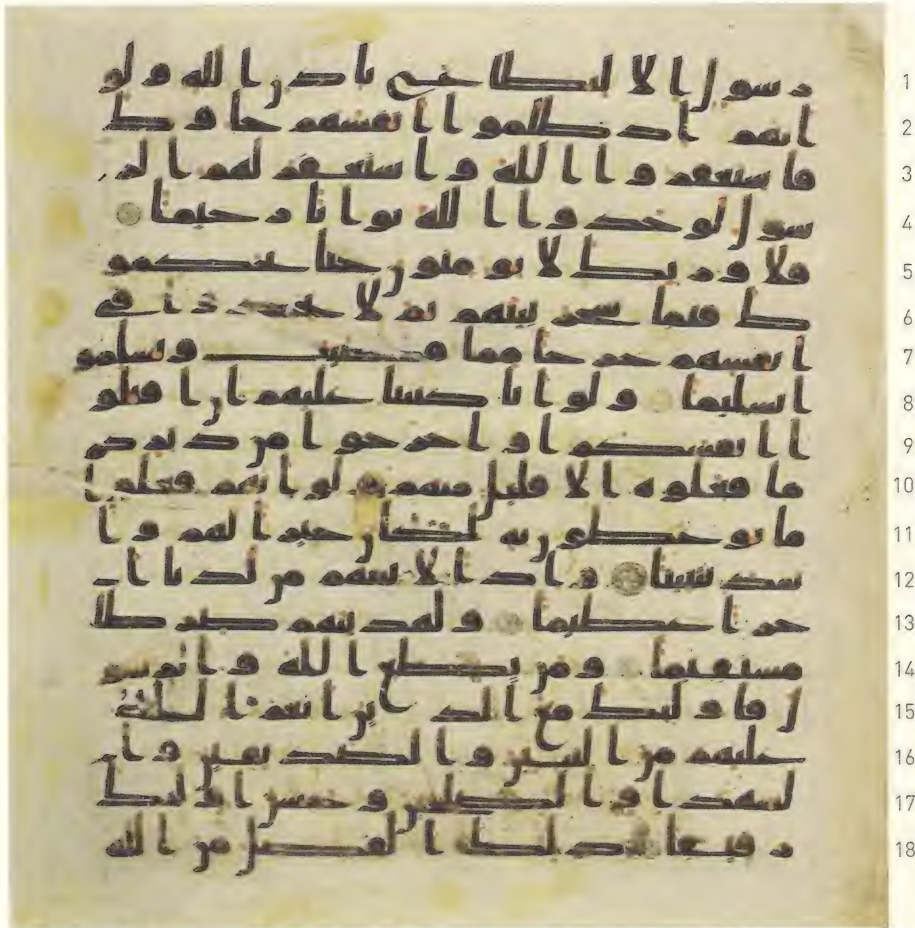 1 رسول الا ليطاع باذن الله ولو
2 انهم اذ ظلموا انفسهم جاوك
3 فاستغفروا الله واستغفر لهم الر
4 سول لوجدوا الله توابا رحيما
5 فلا وربك لا يومنون حتى يحكمو
6 ك فيما شجر بينهم ثم لا يجدوا في
7 انفسهم حرجا مما قضيت ويسلمو
8 ا تسليما ولو انا كتبنا عليهم ان اقتلو
9 ا انفسكم او اخرجوا من ديركم
10 ما فعلوه الا قليل منهم ولو انهم فعلوا
11 ما يوعظون به لكان خيرا لهم وا
12 شد تثبيتا واذا لاتينهم من لدنا ا
13 جرا عظيما ولهدينهم صرطا
14 مستقيما ومن يطع الله والرسو
15 ل فاوليك مع الذين انعم الله
16 عليهم من النبين والصديقين وا
17 لشهدا والصلحين وحسن اوليك
18 رفيقا ذلك الفضل من الله